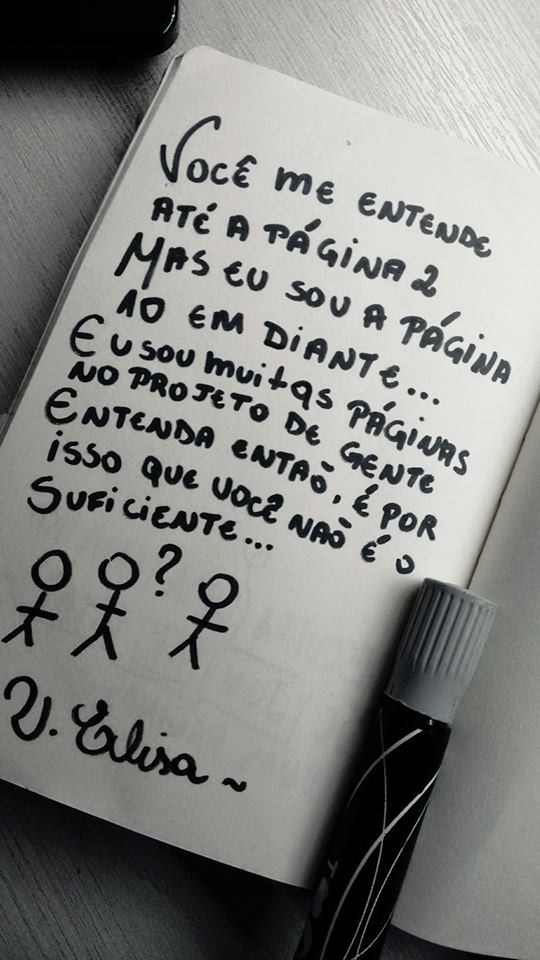 Você me entende
até a página 2
Mas eu sou a página
10 em diante...
Eu sou muitas páginas
no projeto de gente
Entenda entaõ, é por
isso que você naõ é o
suficiente...
?
V. Elisa ~